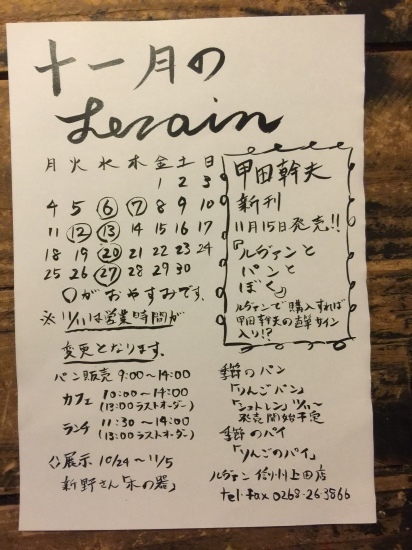 十一月の
Levain
月 火 水 木 金 土 日
1 2 3
4 5 6 7 8 9 10
11 12 13 14 15 16 17
18 19 20 21 22 23 24
25 26 27 28 29 30
○がおやすみです。
※11/11は営業時間が
変更となります。
パン販売 9:00〜14:00
カフェ 10:00〜14:00
(13:00ラストオーダー)
ランチ 11:30〜14:00
(13:00ラストオーダー)
◇展示 10/24〜11/5
新野さん「木の器」
甲田幹夫
新刊
11月15日発売!!
『ルヴァンと
パンと
ぼく』
ルヴァンで購入すれば
甲田幹夫の直筆サイン
入り!?
季節のパン
「りんごパン」
「シュトレン」11/11〜
発売開始予定
季節のパイ
「りんごのパイ」
ルヴァン信州上田店
tel・fax 0268-26-3866